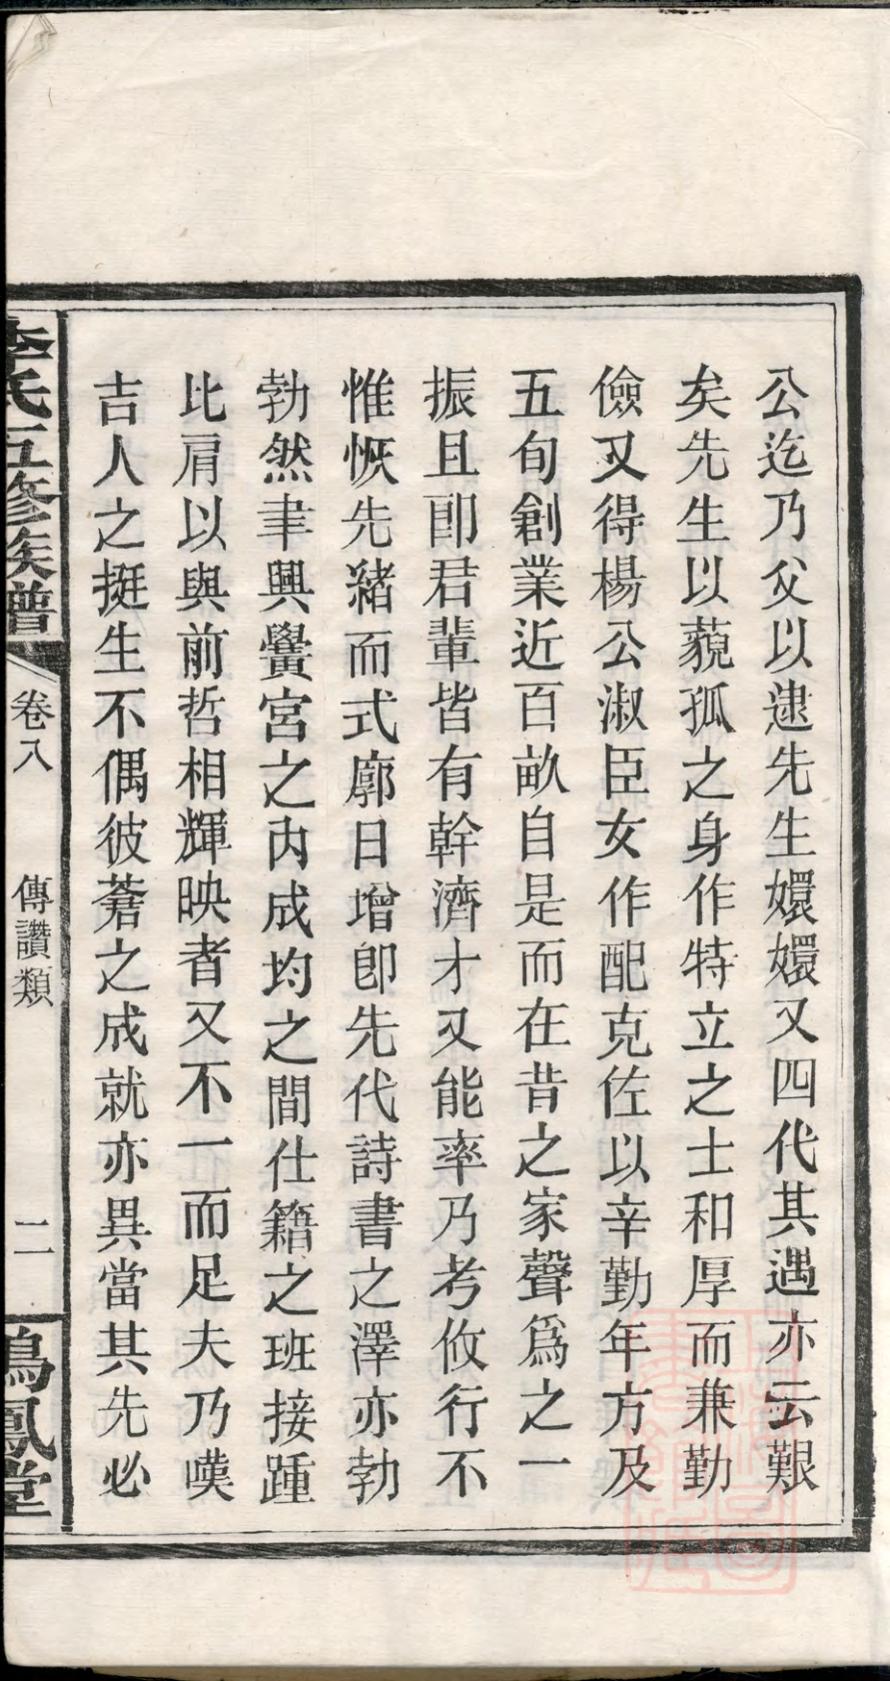 公迄乃父以逮先生嬛嬛又四代其遇亦云艱
矣先生以藐孤之身作特立之士和厚而兼勤
儉又得楊公淑臣女作配克佐以辛勤年方及
五旬創業近百畝自是而在昔之家聲爲之一
振且卽君輩皆有幹濟才又能率乃考攸行不
惟恢先緒而式廓日增卽先代詩書之澤亦勃
勃然聿興黌宮之內成均之間仕籍之班接踵
比肩以與前哲相輝映者又不一而足夫乃嘆
吉人之挺生不偶彼蒼之成就亦異當其先必
李氏五修族譜
卷八
傳讚類
二
鳴鳳堂